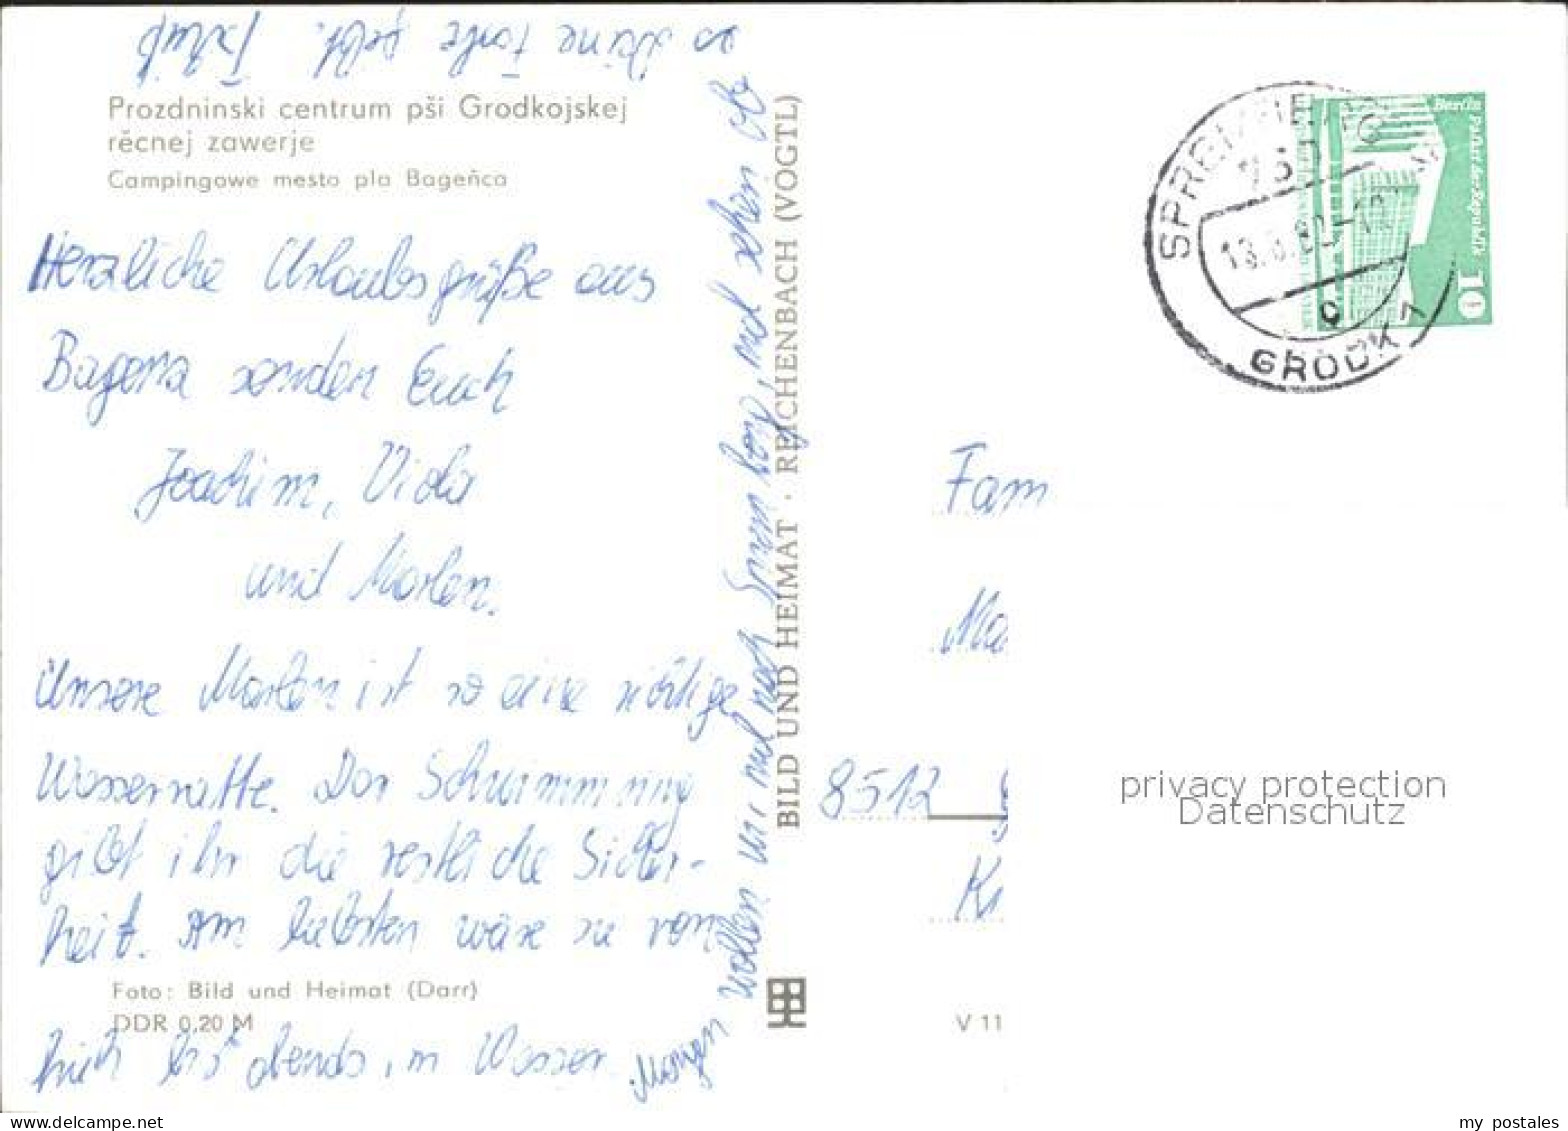 Prozdninski centrum pśi Grodkojskej
rěcnej zawerje
Campingowe mesto pla Bageńca
Herzliche Urlaubsgrüße aus
Bagenz senden Euch
Joachim, Viola
und Marlen.
Unsere Marlen ist so eine richtige
Wasserratte. Der Schwimmring
gibt ihr die restliche Sicher-
heit. Am liebsten wäre sie von
früh bis abends im Wasser.
Morgen wollen wir mal nach Spremberg, mal sehen ob
es Deine Torte gibt. Tschüß
Foto: Bild und Heimat (Darr)
DDR 0,20 M
BILD UND HEIMAT · REICHENBACH (VOGTL)
V 11
SPREMBERG
GRODK 1
Berlin Palast der Republik
10
DDR
Fam
Ma
8512
privacy protection
Datenschutz
my postales